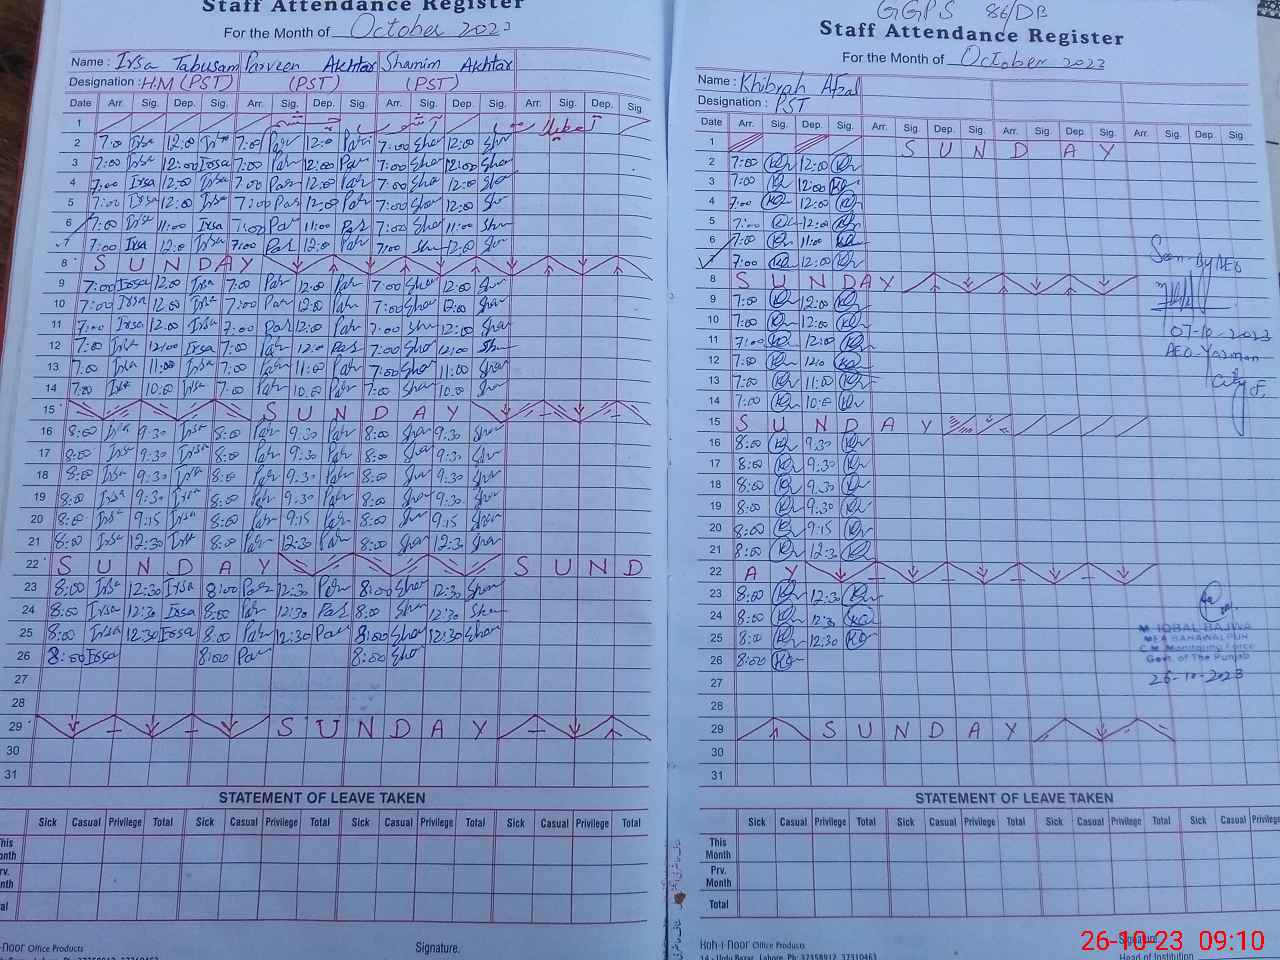 Staff Attendance Register
For the Month of October 2023
Name : Irsa Tabusam Parveen Akhtar Shamim Akhtar
Designation : H.M (PST) (PST) (PST)
Date Arr. Sig. Dep. Sig. Arr. Sig. Dep. Sig. Arr. Sig. Dep. Sig. Arr. Sig. Dep. Sig
1
2 7:00 Irsa 12:00 Irsa 7:00 Par 12:00 Par 7:00 Sham 12:00 Sha
3 7:00 Irsa 12:00 Irssa 7:00 Par 12:00 Par 7:00 Sham 12:00 Sham
4 7:00 Irsa 12:00 Irsa 7:00 Par 12:00 Par 7:00 Sham 12:00 Sha
5 7:00 Irsa 12:00 Irsa 7:00 Par 12:00 Par 7:00 Sham 12:00 Sha
6 7:00 Irsa 11:00 Irsa 7:00 Par 11:00 Par 7:00 Sham 11:00 Sha
7 7:00 Irsa 12:0 Irsa 7:00 Par 12:0 Par 7:00 Sham 12:00 Sha
8 S U N D A Y
9 7:00 Irssa 12:00 Irsa 7:00 Par 12:00 Par 7:00 Sham 12:00 Sha
10 7:00 Irssa 12:00 Irsa 7:00 Par 12:00 Par 7:00 Sham 12:00 Sha
11 7:00 Irsa 12:00 Irsa 7:00 Par 12:00 Par 7:00 Sham 12:00 Sham
12 7:00 Irsa 12:00 Irssa 7:00 Par 12:00 Par 7:00 Sham 12:00 Sha
13 7:00 Irsa 11:00 Irsa 7:00 Par 11:00 Par 7:00 Sham 11:00 Sha
14 7:00 Irsa 10:00 Irsa 7:00 Par 10:00 Par 7:00 Sham 10:00 Sha
15 S U N D A Y
16 8:00 Irsa 9:30 Irsa 8:00 Par 9:30 Par 8:00 Sham 9:30 Sha
17 8:00 Irsa 9:30 Irsa 8:00 Par 9:30 Par 8:00 Sham 9:30 Sha
18 8:00 Irsa 9:30 Irsa 8:00 Par 9:30 Par 8:00 Sham 9:30 Sha
19 8:00 Irsa 9:30 Irsa 8:00 Par 9:30 Par 8:00 Sham 9:30 Sha
20 8:00 Irsa 9:15 Irsa 8:00 Par 9:15 Par 8:00 Sham 9:15 Sham
21 8:00 Irsa 12:30 Irsa 8:00 Par 12:30 Par 8:00 Sham 12:30 Sham
22 S U N D A Y S U N D
23 8:00 Irsa 12:30 Irsa 8:00 Par 12:30 Par 8:00 Sham 12:30 Sham
24 8:00 Irsa 12:30 Irssa 8:00 Par 12:30 Par 8:00 Sham 12:30 Sham
25 8:00 Irsa 12:30 Irssa 8:00 Par 12:30 Par 8:00 Sham 12:30 Sham
26 8:00 Irssa 8:00 Par 8:00 Sha
27
28
29 S U N D A Y
30
31
STATEMENT OF LEAVE TAKEN
Sick Casual Privilege Total Sick Casual Privilege Total Sick Casual Privilege Total Sick Casual Privilege Total
This
nth
rv.
nth
al
-noor Office Products
Signature.
GGPS 86/DB
Staff Attendance Register
For the Month of October 2023
Name : Khibrah Afzal
Designation : PST
Date Arr. Sig. Dep. Sig. Arr. Sig. Dep. Sig. Arr. Sig. Dep. Sig. Arr. Sig. Dep. Sig.
1 S U N D A Y
2 7:00 12:00
3 7:00 12:00
4 7:00 12:00
5 7:00 12:00
6 7:00 11:00
7 7:00 12:00
8 S U N D A Y
9 7:00 12:00
10 7:00 12:00
11 7:00 12:00
12 7:00 12:0
13 7:00 11:00
14 7:00 10:00
15 S U N D A Y
16 8:00 9:30
17 8:00 9:30
18 8:00 9:30
19 8:00 9:30
20 8:00 9:15
21 8:00 12:30
22 A Y
23 8:00 12:30
24 8:00 12:30
25 8:00 12:30
26 8:00
27
28
29 S U N D A Y
30
31
Seen By AEO
07-10-2023
AEO-Yazman
City F.
M. IQBAL BAJWA
MEA BAHAWALPUR
C.M Monitoring Force
Govt. of The Punjab
26-10-2023
STATEMENT OF LEAVE TAKEN
Sick Casual Privilege Total Sick Casual Privilege Total Sick Casual Privilege Total Sick Casual Privilege
This
Month
Prv.
Month
Total
Koh-i-noor Office Products
14 - Urdu Bazar, Lahore. Ph: 37358912, 37310463
Head of Institution
26-10-23 09:10